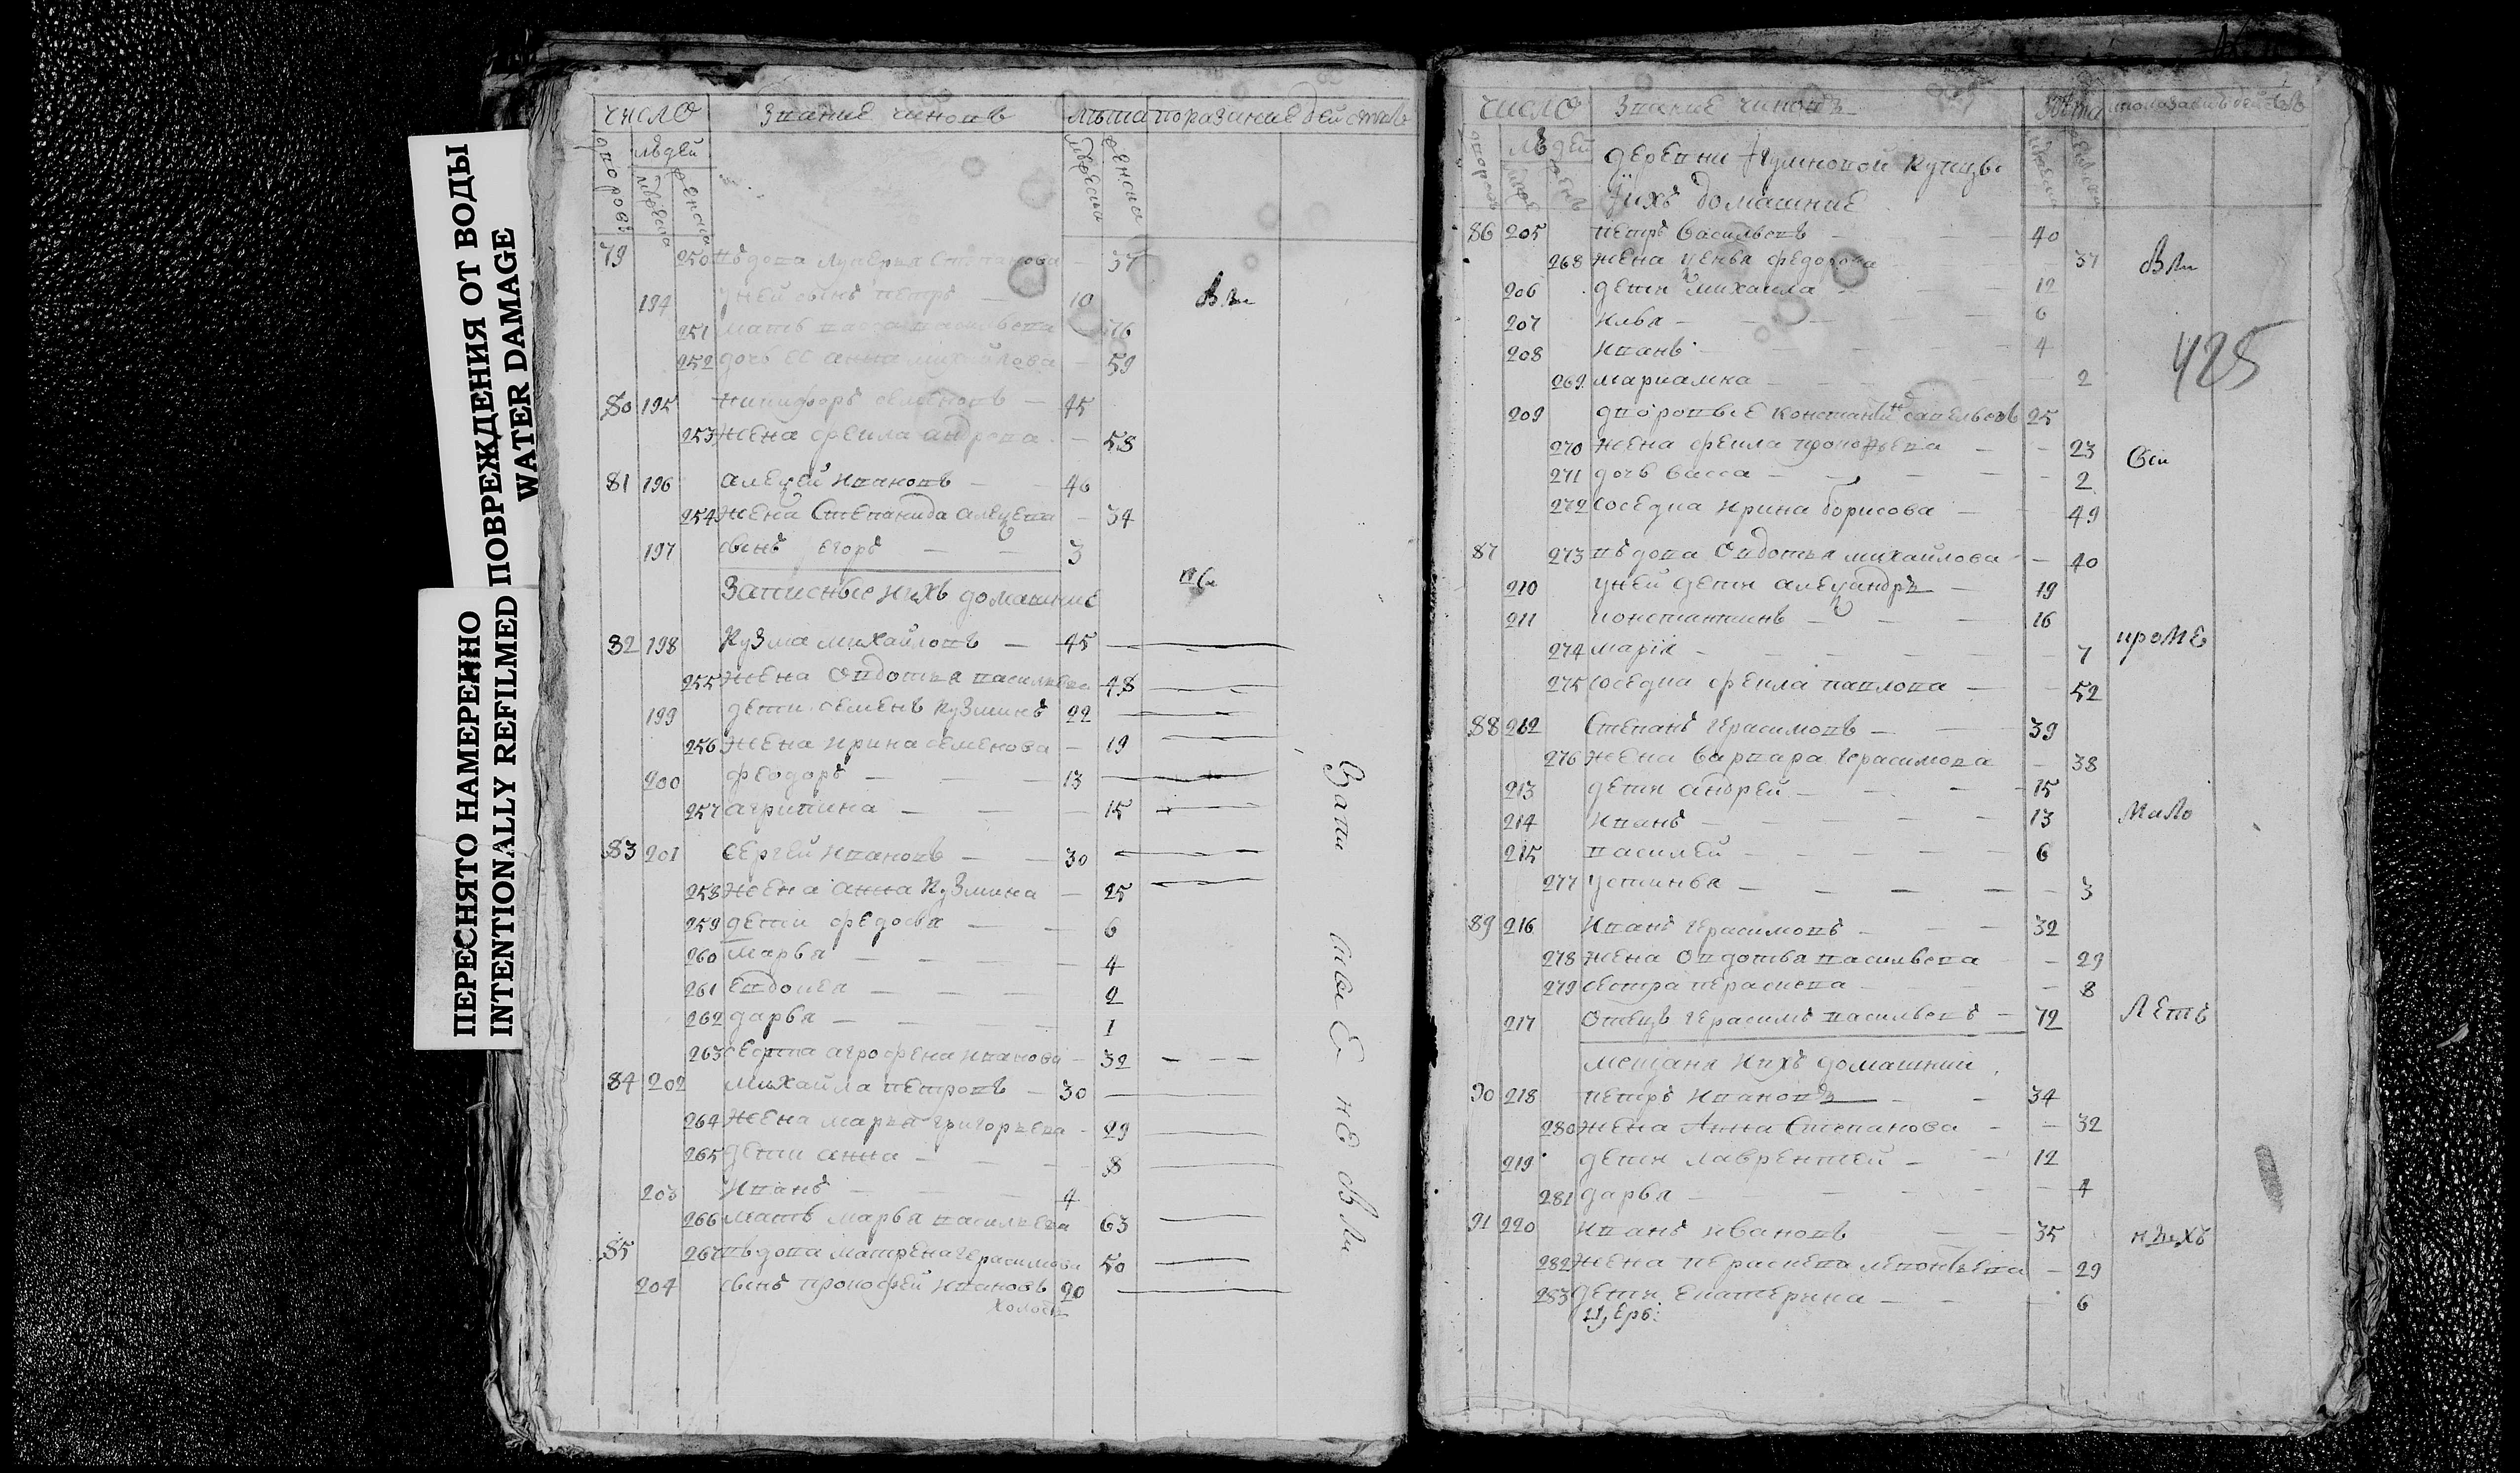 ПЕРЕСНЯТО НАМЕРЕННО
INTENTIONALLY REFILMED
ПОВРЕЖДЕНИЯ ОТ ВОДЫ
WATER DAMAGE
число Звание чиновъ лѣта
людей
79 250 вѣдова Лукерья Степанова 37
194 у ней сынъ петръ 10
251 мать васса васильева 76
252 дочь ее анна михайлова 59
80 195 никифоръ семеновъ 45
253 жена фекла 58
81 196 алеѯей ивановъ 40
254 жена Степанида алеѯева 34
197 сынъ егоръ 3
Записные ихъ домашние
82 198 кузма михайловъ 45
255 жена овдотья васильева 48
199 дети семенъ кузминъ 22
256 жена ирина семенова 19
200 феодоръ 13
257 агрипина 15
83 201 сергей ивановъ 30
258 жена анна кузмина 25
259 дети федосья 6
260 марья 4
261 евдокея 2
262 дарья 1
263 сестра агрофена иванова 32
84 202 михаила петровъ 30
264 жена марья григорьева 29
265 дети анна 8
203 иванъ 4
266 мать марья васильева 63
85 267 вѣдова матрена герасимова 50
204 сынъ прокофей ивановъ 20
холостъ
Запи сные не бы ли
число Звание чиновъ лѣта
людей
деревни кунцы
ихъ домашние
86 205 петръ васильевъ 40
268 жена федорова 37
бы
206 дети михаила 12
207 илья 6
208 иванъ 4
425
269 мариамна 2
209 дворовые константинъ савельевъ 25
270 жена фекла прокофьева 23
271 дочь васса 2
272 соседка ирина борисова 49
87 273 вѣдова овдотья михайлова 40
210 у ней дети алеѯандръ 19
211 константинъ 16
кроме
274 марія 7
275 соседка фекла павлова 52
88 212 Степанъ герасимовъ 39
276 жена варвара герасимова 38
213 дети андрей 15
214 иванъ 13
мало
215 василей 6
277 устинья 3
89 216 иванъ герасимовъ 32
278 жена овдотья васильева 29
279 сестра параскева 8
217 отецъ герасимъ васильевъ 72
летъ
мещаня ихъ домашнии
90 218 петръ ивановъ 34
280 жена Анна Степанова 32
219 дети лаврентей 12
281 дарья 4
91 220 иванъ ивановъ 35
нихъ
282 жена параскева леонтьева 29
283 дети екатерина 6
церк: